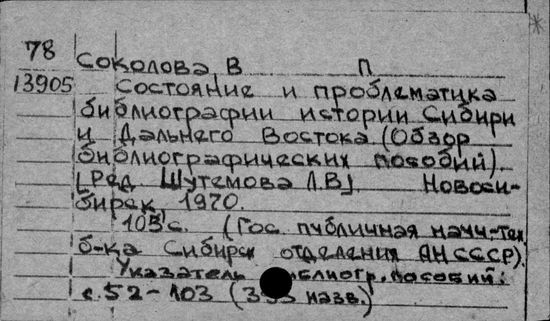 78
Соколова В П
13905 Состояние и проблематика
библиографии истории Сибири
и Дальнего Востока (Обзор
библиографических пособий).
[Ред Шутемова Л.В] Новоси-
бирск, 1970.
103 с. (Гос публичная научн-тех
б-ка Сибирск отделения АН СССР).
Указатель библиогр. пособий:
с. 52-103 (назв.)